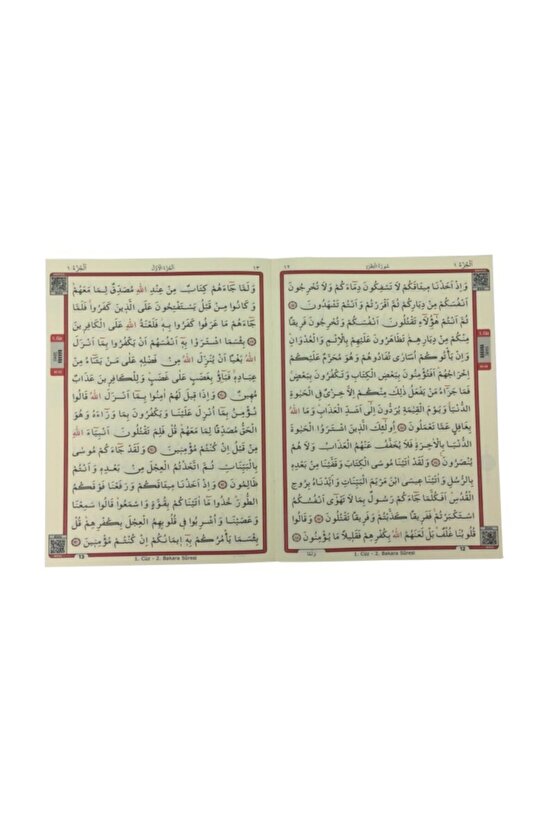 اَلْجُزْءُ ١ سُورَةُ الْبَقَرَةِ ١٢
وَاِذْ اَخَذْنَا مٖيثَاقَكُمْ لَا تَسْفِكُونَ دِمَٓاءَكُمْ وَلَا تُخْرِجُونَ
اَنْفُسَكُمْ مِنْ دِيَارِكُمْ ثُمَّ اَقْرَرْتُمْ وَاَنْتُمْ تَشْهَدُونَ
ثُمَّ اَنْتُمْ هٰٓؤُ۬لَٓاءِ تَقْتُلُونَ اَنْفُسَكُمْ وَتُخْرِجُونَ فَرٖيقًا
مِنْكُمْ مِنْ دِيَارِهِمْ تَظَاهَرُونَ عَلَيْهِمْ بِالْاِثْمِ وَالْعُدْوَانِ
وَاِنْ يَأْتُوكُمْ اُسَارٰى تُفَادُوهُمْ وَهُوَ مُحَرَّمٌ عَلَيْكُمْ
اِخْرَاجُهُمْ اَفَتُؤْمِنُونَ بِبَعْضِ الْكِتَابِ وَتَكْفُرُونَ بِبَعْضٍ
فَمَا جَزَٓاءُ مَنْ يَفْعَلُ ذٰلِكَ مِنْكُمْ اِلَّا خِزْيٌ فِي الْحَيٰوةِ
الدُّنْيَا وَيَوْمَ الْقِيٰمَةِ يُرَدُّونَ اِلٰٓى اَشَدِّ الْعَذَابِ وَمَا اللّٰهُ
بِغَافِلٍ عَمَّا تَعْمَلُونَ اُو۬لٰٓئِكَ الَّذٖينَ اشْتَرَوُا الْحَيٰوةَ
الدُّنْيَا بِالْاٰخِرَةِ فَلَا يُخَفَّفُ عَنْهُمُ الْعَذَابُ وَلَا هُمْ
يُنْصَرُونَ وَلَقَدْ اٰتَيْنَا مُوسَى الْكِتَابَ وَقَفَّيْنَا مِنْ بَعْدِهٖ
بِالرُّسُلِ وَاٰتَيْنَا عٖيسَى ابْنَ مَرْيَمَ الْبَيِّنَاتِ وَاَيَّدْنَاهُ بِرُوحِ
الْقُدُسِ اَفَكُلَّمَا جَٓاءَكُمْ رَسُولٌ بِمَا لَا تَهْوٰٓى اَنْفُسُكُمُ
اسْتَكْبَرْتُمْ فَفَرٖيقًا كَذَّبْتُمْ وَفَرٖيقًا تَقْتُلُونَ وَقَالُوا
قُلُوبُنَا غُلْفٌ بَلْ لَعَنَهُمُ اللّٰهُ بِكُفْرِهِمْ فَقَلٖيلًا مَا يُؤْمِنُونَ
1. Cüz - 2. Bakara Sûresi
12
١٣ اَلْجُزْءُ الْاَوَّلُ اَلْجُزْءُ ١
وَلَمَّا جَٓاءَهُمْ كِتَابٌ مِنْ عِنْدِ اللّٰهِ مُصَدِّقٌ لِمَا مَعَهُمْ
وَكَانُوا مِنْ قَبْلُ يَسْتَفْتِحُونَ عَلَى الَّذٖينَ كَفَرُوا فَلَمَّا
جَٓاءَهُمْ مَا عَرَفُوا كَفَرُوا بِهٖ فَلَعْنَةُ اللّٰهِ عَلَى الْكَافِرٖينَ
بِئْسَمَا اشْتَرَوْا بِهٖٓ اَنْفُسَهُمْ اَنْ يَكْفُرُوا بِمَٓا اَنْزَلَ
اللّٰهُ بَغْيًا اَنْ يُنَزِّلَ اللّٰهُ مِنْ فَضْلِهٖ عَلٰى مَنْ يَشَٓاءُ مِنْ
عِبَادِهٖ فَبَٓاؤُ۫ بِغَضَبٍ عَلٰى غَضَبٍ وَلِلْكَافِرٖينَ عَذَابٌ
مُهٖينٌ وَاِذَا قٖيلَ لَهُمْ اٰمِنُوا بِمَٓا اَنْزَلَ اللّٰهُ قَالُوا
نُؤْمِنُ بِمَٓا اُنْزِلَ عَلَيْنَا وَيَكْفُرُونَ بِمَا وَرَٓاءَهُ وَهُوَ
الْحَقُّ مُصَدِّقًا لِمَا مَعَهُمْ قُلْ فَلِمَ تَقْتُلُونَ اَنْبِيَٓاءَ اللّٰهِ
مِنْ قَبْلُ اِنْ كُنْتُمْ مُؤْمِنٖينَ وَلَقَدْ جَٓاءَكُمْ مُوسٰى
بِالْبَيِّنَاتِ ثُمَّ اتَّخَذْتُمُ الْعِجْلَ مِنْ بَعْدِهٖ وَاَنْتُمْ
ظَالِمُونَ وَاِذْ اَخَذْنَا مٖيثَاقَكُمْ وَرَفَعْنَا فَوْقَكُمُ
الطُّورَ خُذُوا مَٓا اٰتَيْنَاكُمْ بِقُوَّةٍ وَاسْمَعُوا قَالُوا سَمِعْنَا
وَعَصَيْنَا وَاُشْرِبُوا فٖي قُلُوبِهِمُ الْعِجْلَ بِكُفْرِهِمْ قُلْ
بِئْسَمَا يَأْمُرُكُمْ بِهٖٓ اٖيمَانُكُمْ اِنْ كُنْتُمْ مُؤْمِنٖينَ
1. Cüz - 2. Bakara Sûresi
13